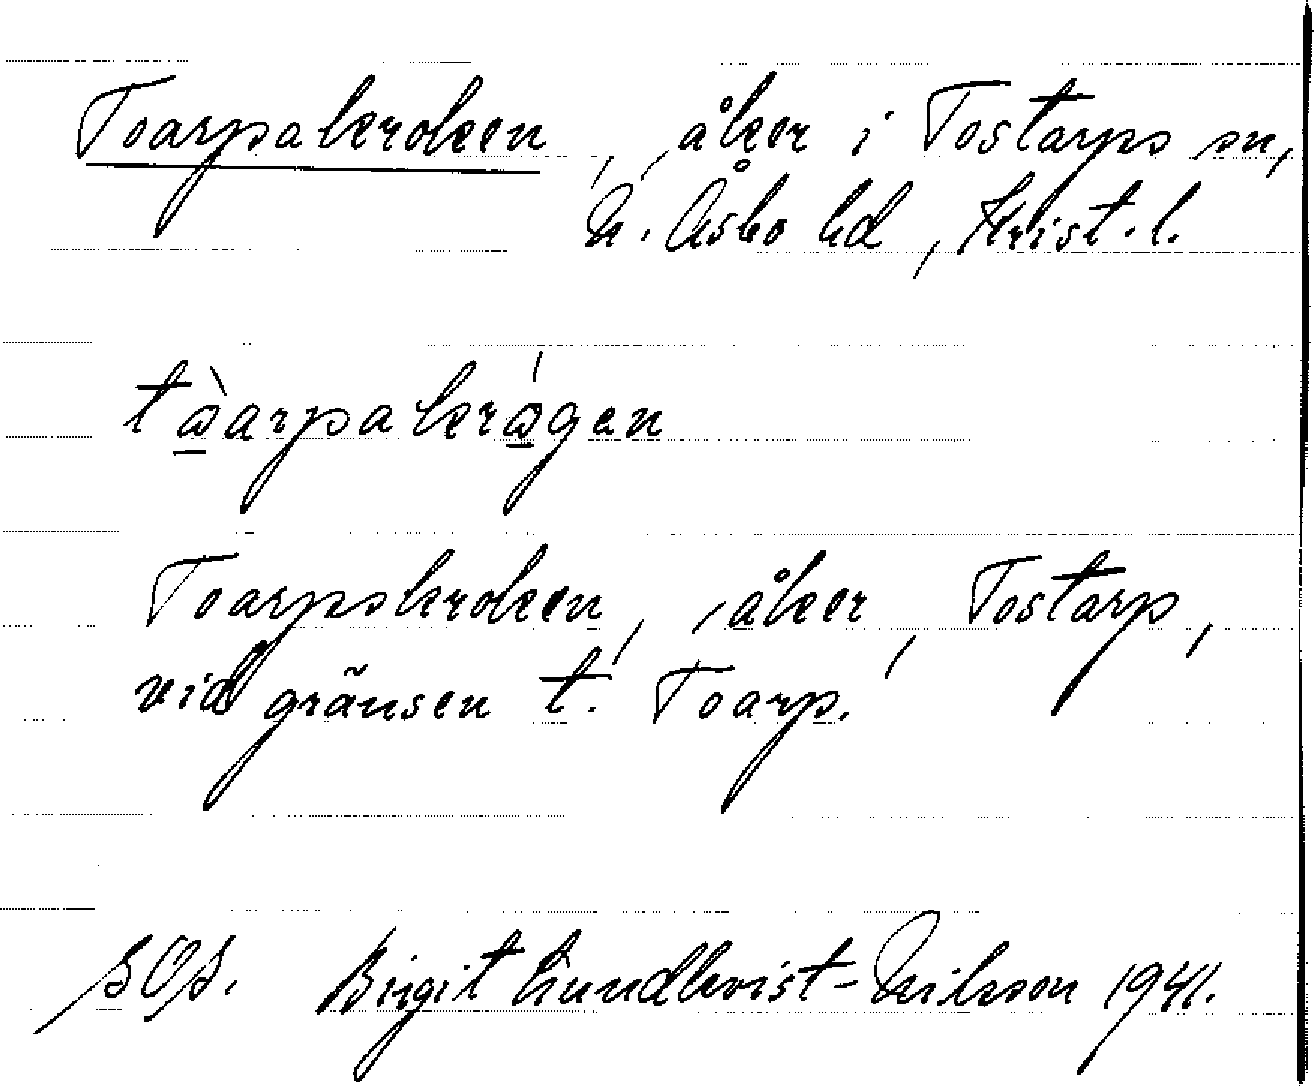 Toarpakroken, åker i Tostarps sn,
N. Åsbo hd, Krist. l.
tὼ̱arpakrώ̱gen
Toarpskroken, åker, Tostarp,
vid gränsen t. Toarp.
SOS. Birgit Lundkvist-Nilsson 1941.